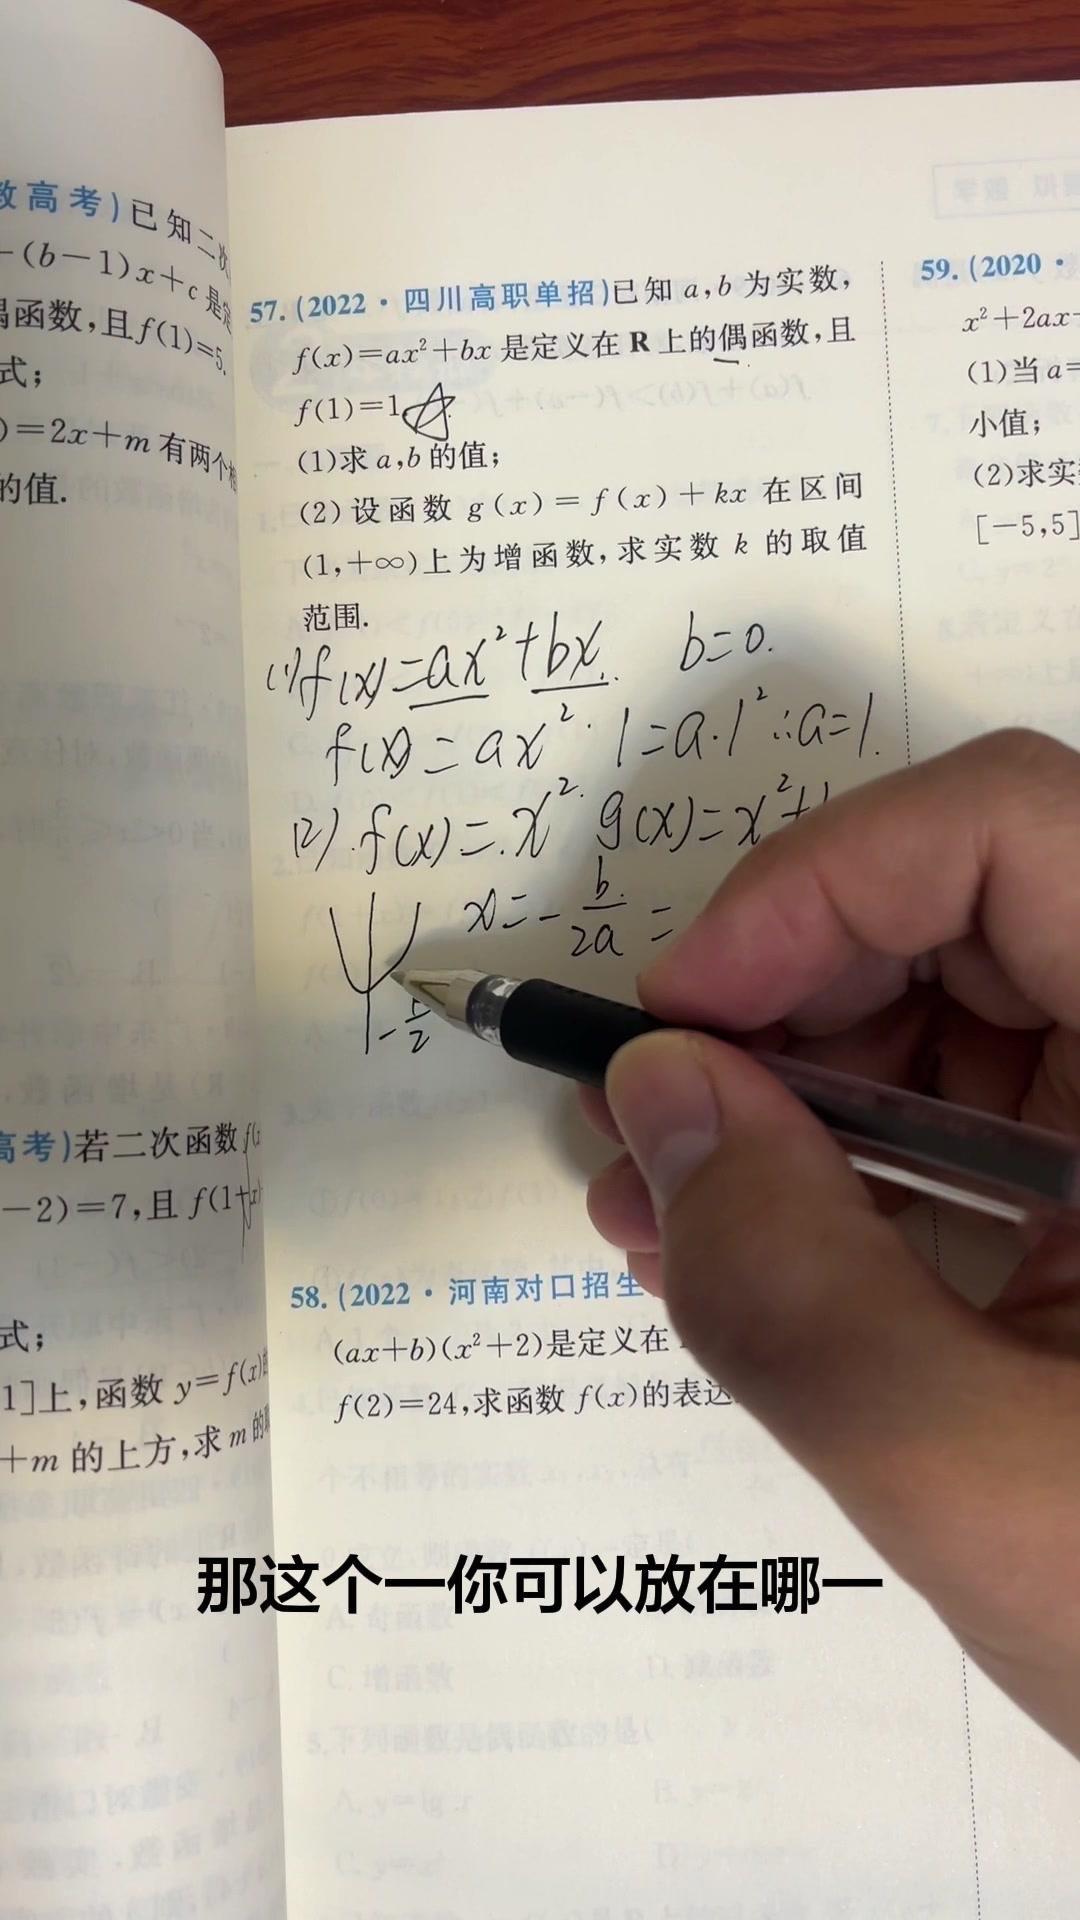 数高考)已知二次
-(b-1)x+c是定
偶函数,且f(1)=5.
式;
)=2x+m有两个相
的值.
高考)若二次函数f(x
-2)=7,且f(1+x)
式;
1]上,函数y=f(x)的
+m的上方,求m的取
57.(2022·四川高职单招)已知a,b为实数,
f(x)=ax²+bx是定义在R上的偶函数,且
f(1)=1.
(1)求a,b的值;
(2)设函数g(x)=f(x)+kx在区间
(1,+∞)上为增函数,求实数k的取值
范围.
(1)f(x)=ax²+bx. b=0.
f(x)=ax². 1=a·1² ∴a=1.
(2).f(x)=x². g(x)=x²+
x=-b/2a=
-k/2
58.(2022·河南对口招生
(ax+b)(x²+2)是定义在
f(2)=24,求函数f(x)的表达
59.(2020·
x²+2ax
(1)当a=
小值;
(2)求实
[-5,5]
那这个一你可以放在哪一